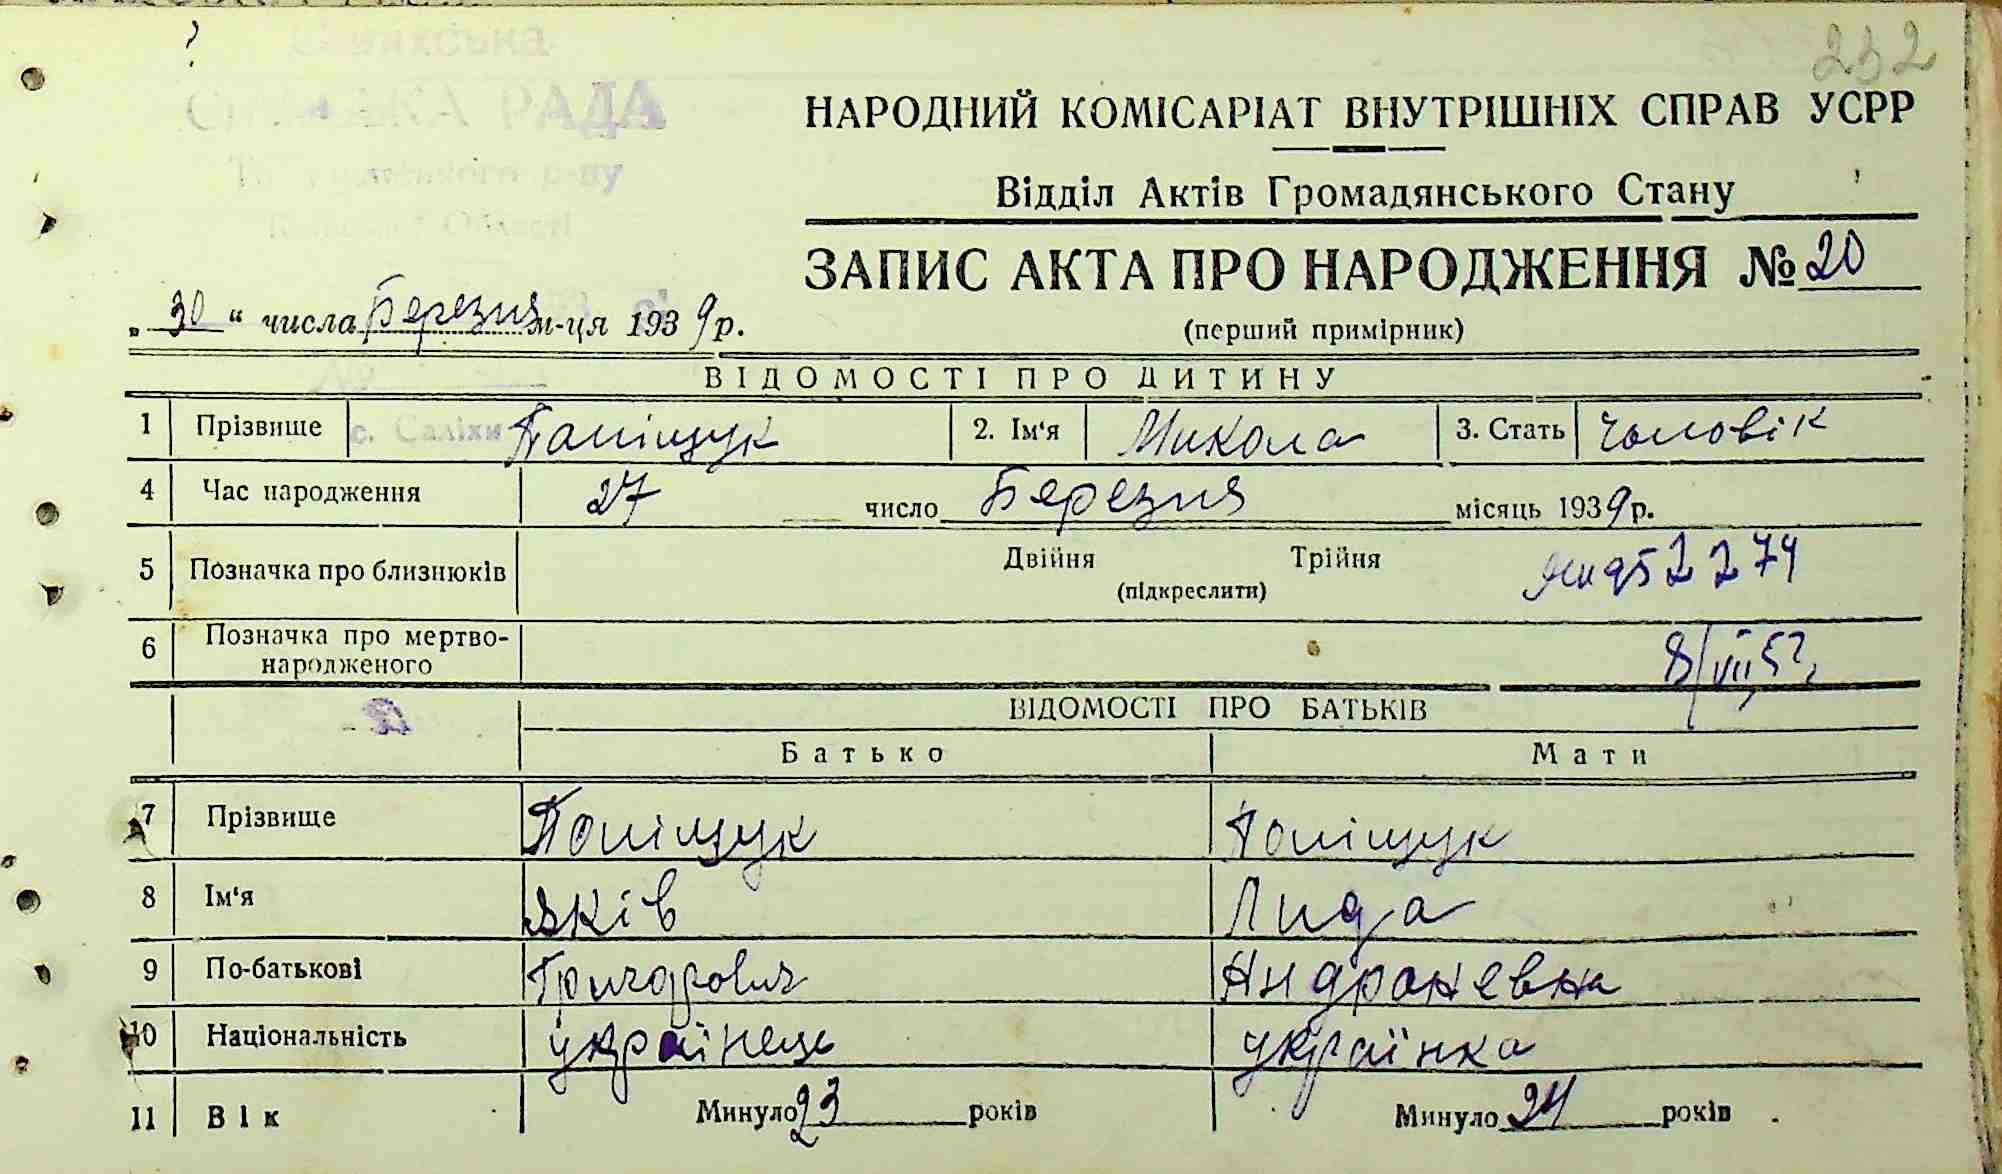 232
РАДА
НАРОДНИЙ КОМІСАРІАТ ВНУТРІШНІХ СПРАВ УСРР
Відділ Актів Громадянського Стану
ЗАПИС АКТА ПРО НАРОДЖЕННЯ № 20
„ 30 “ числа Березня м-ця 1939 р.
(перший примірник)
ВІДОМОСТІ ПРО ДИТИНУ
1 Прізвище с. Саліхи Поліщук 2. Ім‘я Микола 3. Стать Чоловік
4 Час народження 27 число Березня місяць 1939 р.
5 Позначка про близнюків Двійня Трійня
(підкреслити)
6 Позначка про мертво-
народженого 8/VII
ВІДОМОСТІ ПРО БАТЬКІВ
Батько Мати
7 Прізвище Поліщук Поліщук
8 Ім‘я Яків Лида
9 По-батькові
10 Національність українець українка
11 Вік Минуло 23 років Минуло 24 років